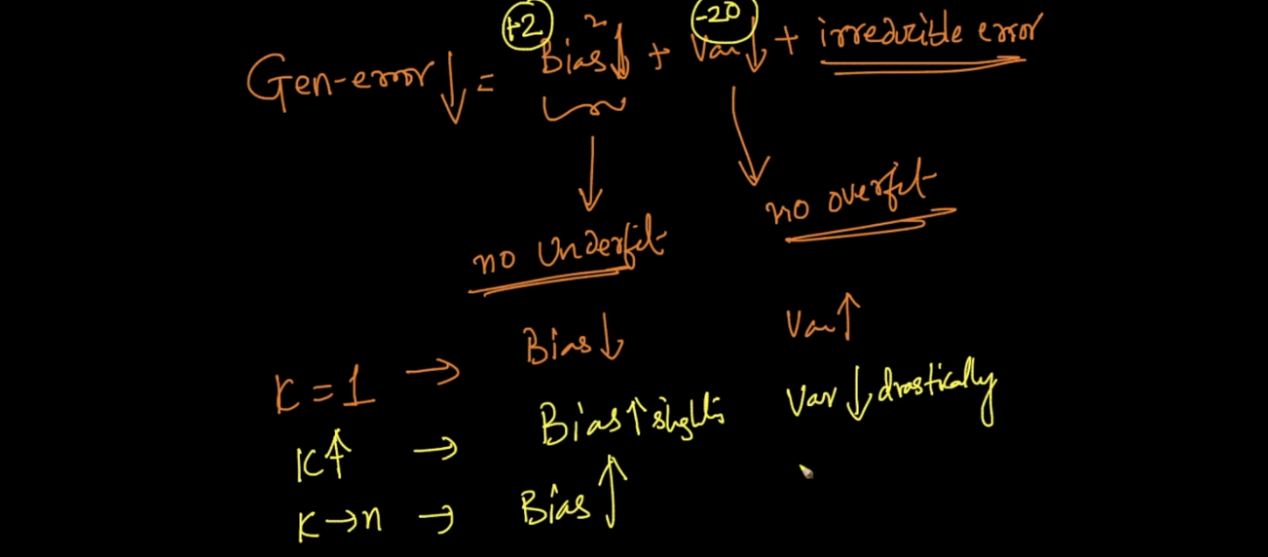 +2 -20
Gen-error ↓ = Bias² ↓ + Var ↓ + irreducible error
no Underfit no overfit
K = 1 → Bias ↓ Var ↑
K ↑ → Bias ↑ slightly Var ↓ drastically
K → n → Bias ↑